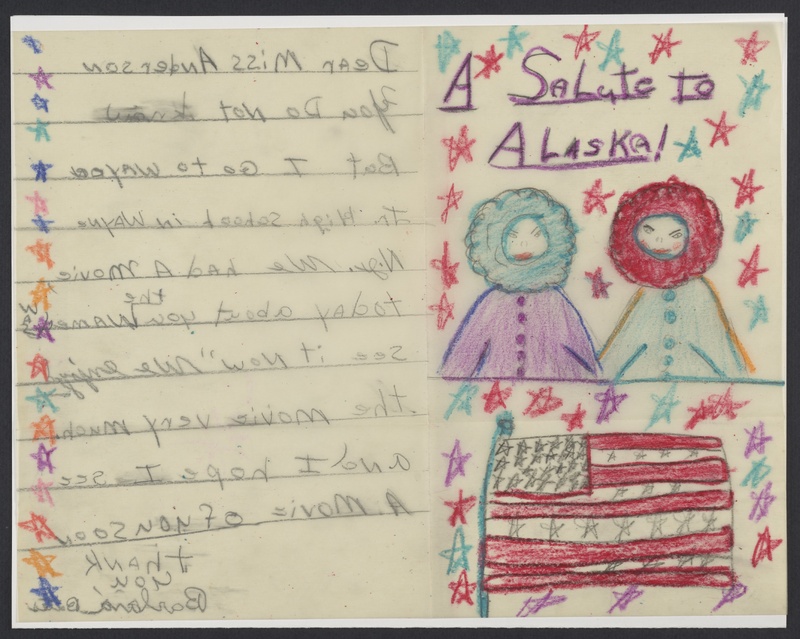 Dear Miss Anderson
You Do Not know
But I Go to Wayne
Jr High School in Wayne
We had A Movie
today about you the
see it Now" We enjoy
the movie very much.
and I hope I see
A Movie of you soon
thank
you
Barbara
A Salute to
Alaska!